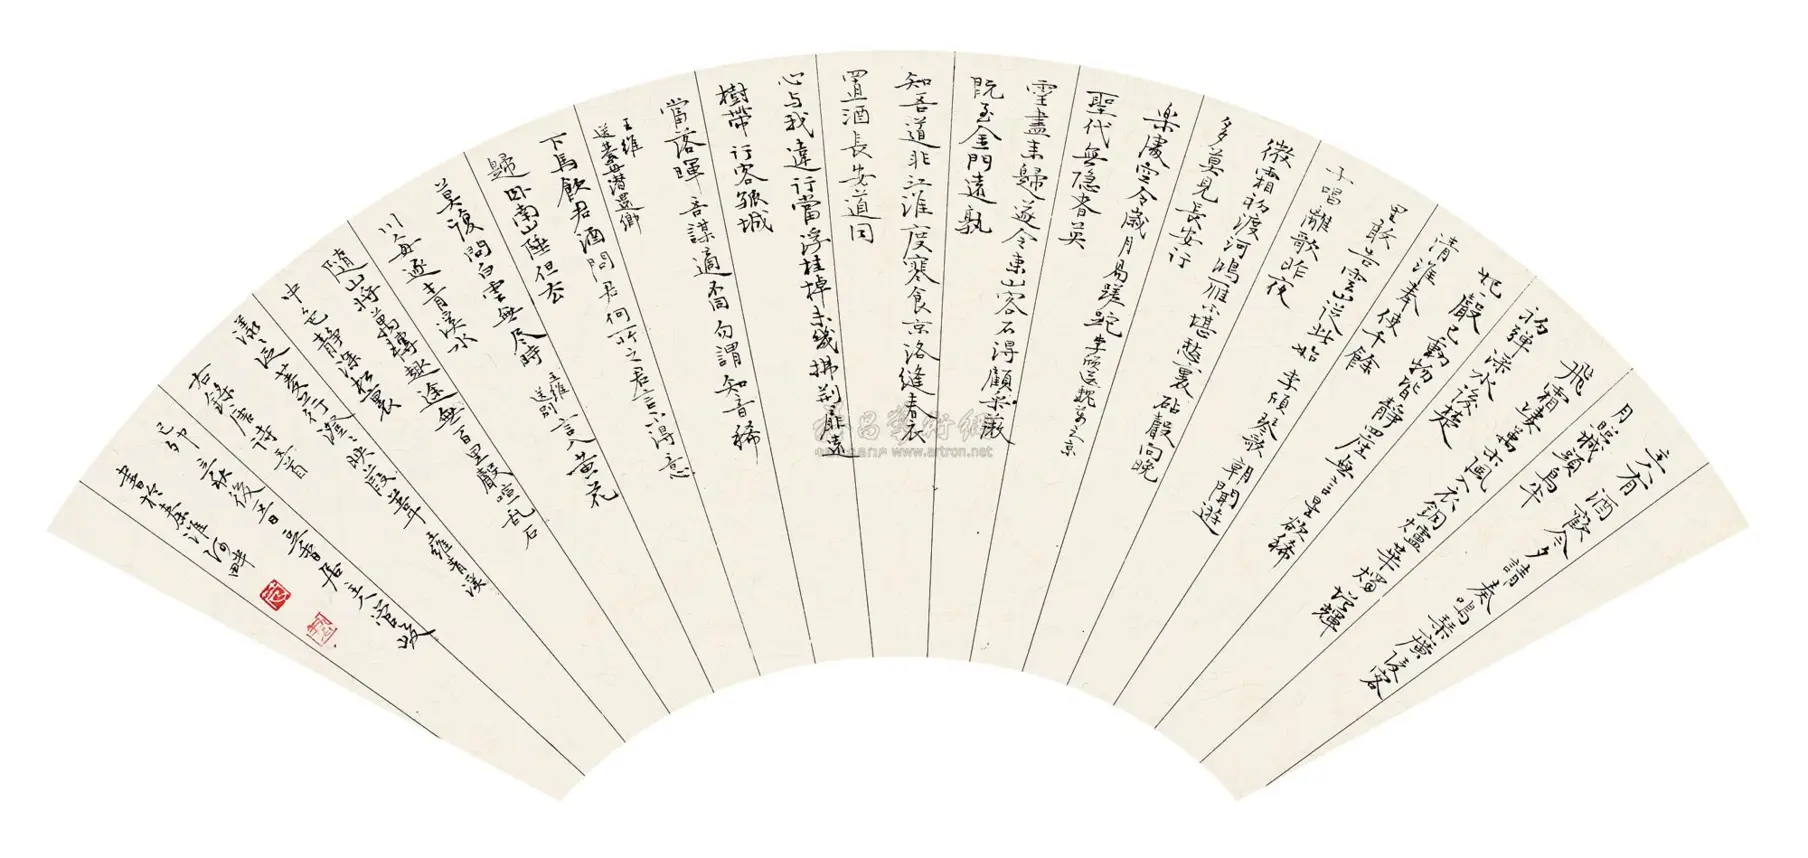 主人有酒歡今夕請奏鳴琴廣陵客
月照城頭烏半
飛霜淒萬木風入衣銅爐華燭增輝
初彈淥水後楚
妃〻聲已動物皆靜四座無言星欲稀
清淮奉使千餘
里敢告雲山從此始 李頎琴歌 朝聞遊
子唱離歌昨夜
微霜初渡河鴻雁不堪愁裏砧聲向晚
多莫見長安行
樂處空令歲月易蹉跎 李頎送魏萬之京
聖代無隱者英
靈盡来歸遂令東山客不得顧采薇
既至金門遠孰
知吾道非江淮度寒食京洛縫春衣
置酒長安道同
心与我違行當浮桂棹未幾拂荊扉遠
樹帶行客孤城
當落暉吾謀適不同勿謂知音稀
王維
送綦毋潛還鄉
下馬飲君酒問君何所之君言不得意
歸卧南山陲但去
莫復問白雲無尽時 王維送別 言入黃花
川每逐青溪水
隨山將萬轉趣途無百里聲喧乱石
中色靜深松裏
漾〻泛菱荇澄〻映葭葦 王維青溪
右錄唐詩五首
己卯立秋後五日 香居主人管峻
書於秦淮河畔
www.artron.net